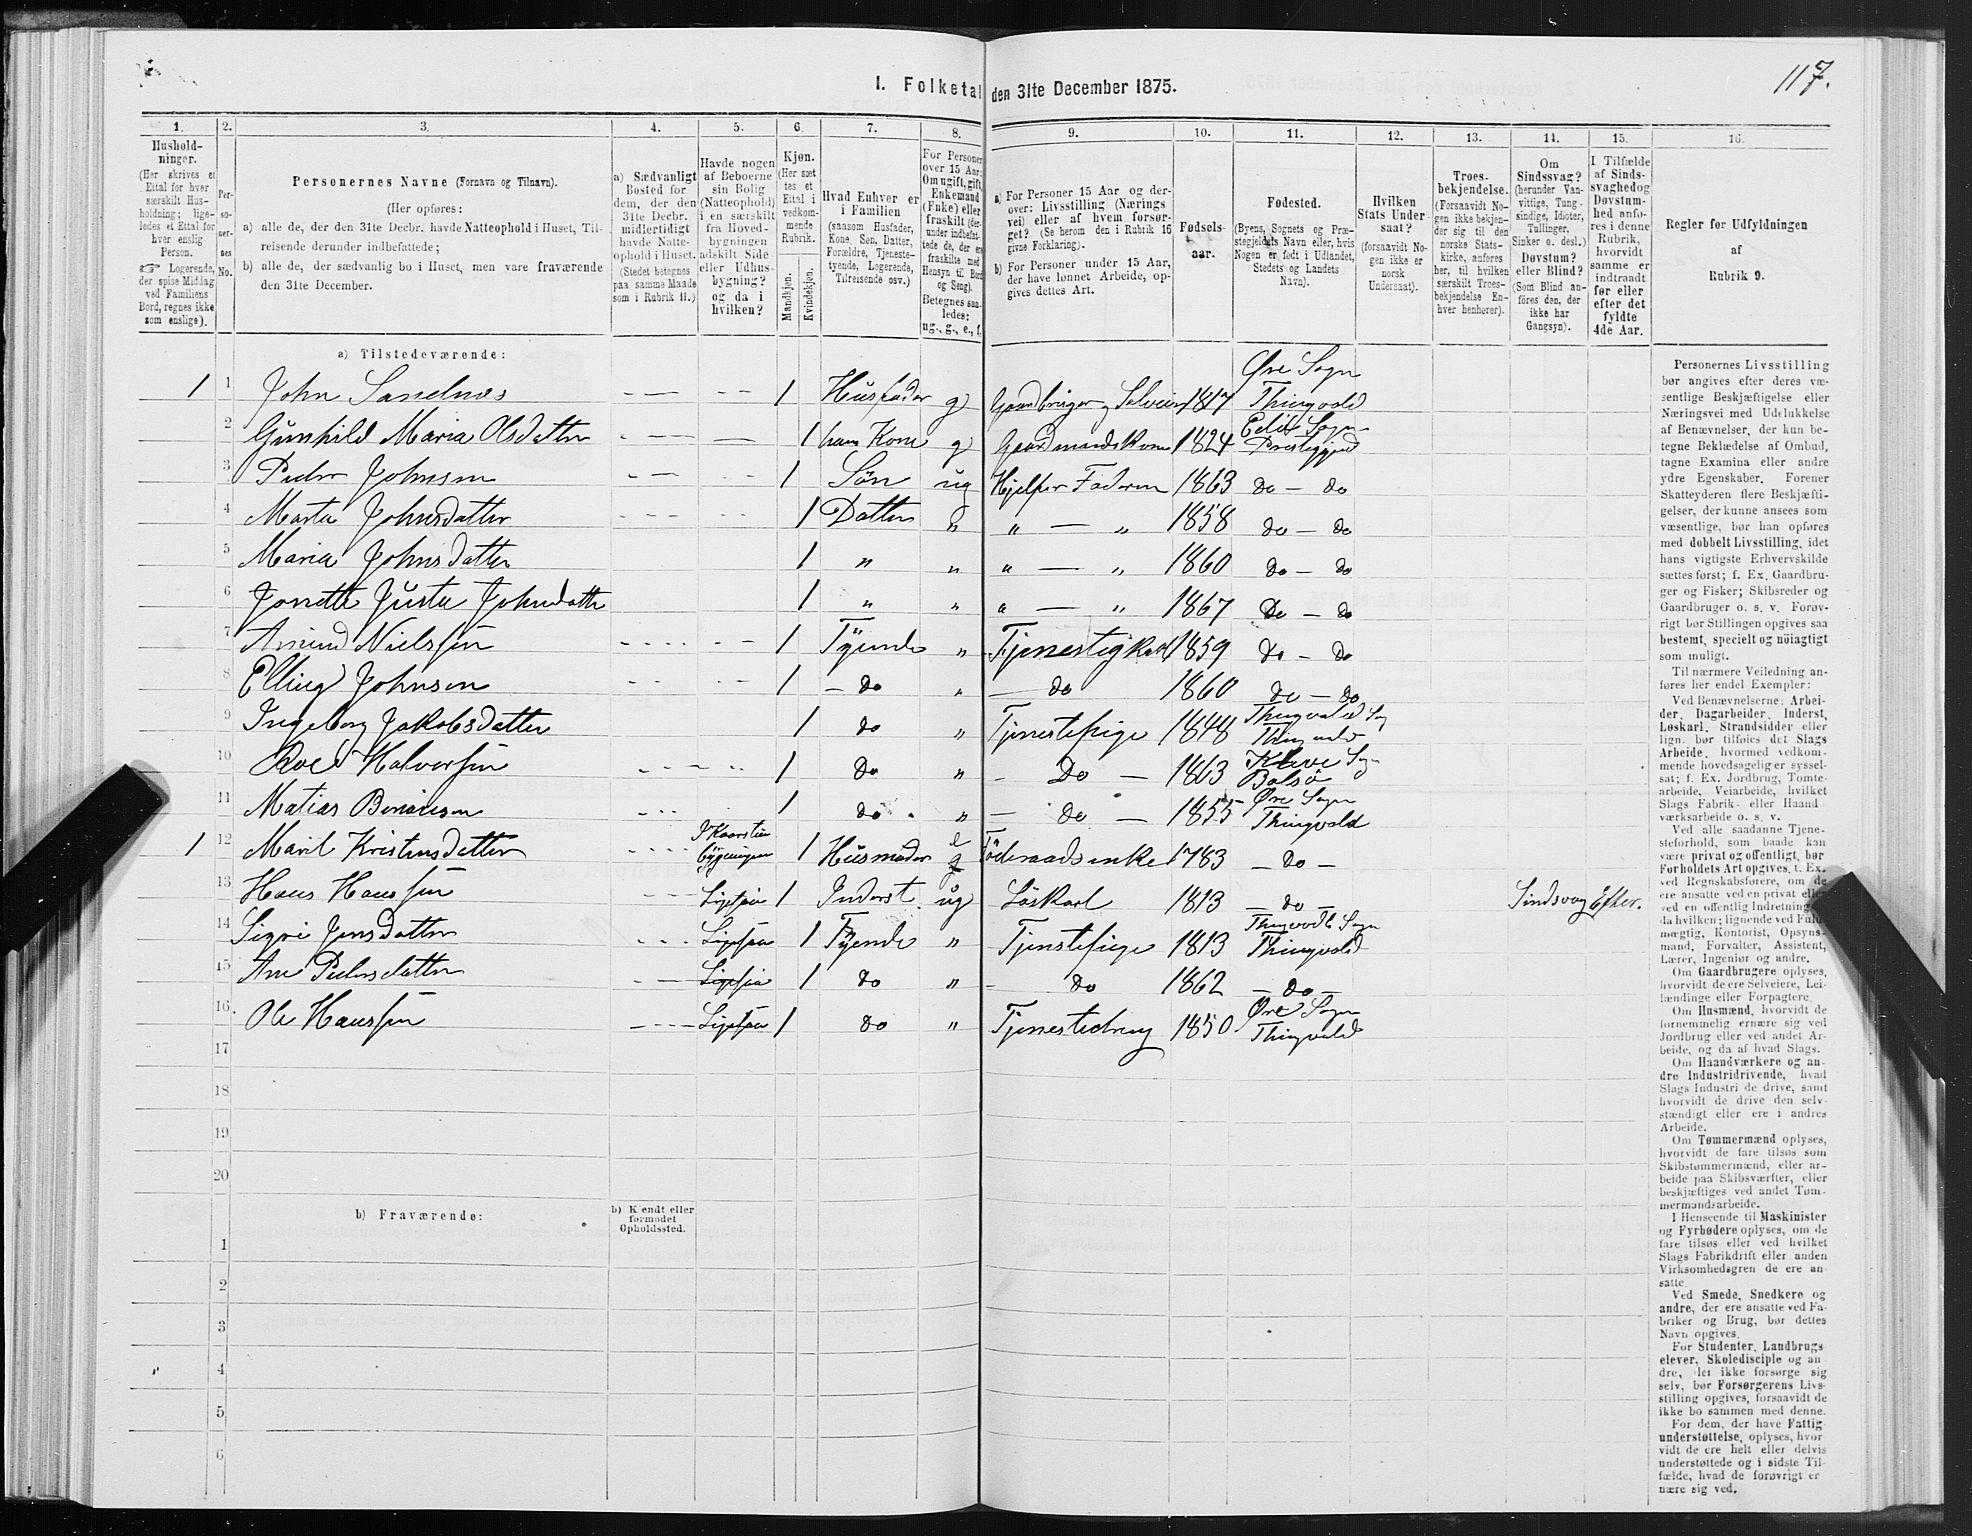 117.
I. Folketal den 31te December 1875.
1. 2. 3. 4. 5. 6. 7. 8. 9. 10. 11. 12. 13. 14. 15. 16.
Hushold-
ninger.
(Her skrives et
Ettal for hver
særskilt Hus-
holdning; lige-
ledes et Ettal for
hver enslig
Person.
☞ Logerende,
der spise Middag
ved Familiens
Bord, regnes ikke
som enslige).
Per-
so-
ner-
nes
No.
Personernes Navne (Fornavn og Tilnavn).
(Her opføres:
a) alle de, der den 31te Decbr. havde Natteophold i Huset, Til-
reisende derunder indbefattede;
b) alle de, der sædvanlig bo i Huset, men vare fraværende
den 31te December.
a) Sædvanligt
Bosted for
dem, der den
31te Decbr.
midlertidigt
havde Natte-
ophold i Huset.
(Stedet betegnes
paa samme Maade
som i Rubrik 11.)
Havde nogen
af Beboerne
sin Bolig
(Natteophold)
i en særskilt
fra Hoved-
bygningen
adskilt Side-
eller Udhus-
bygning?
og da i
hvilken?
Kjøn.
(Her sæt-
tes et
Ettal i
vedkom-
mende
Rubrik.
Mandkjøn.
Kvindekjøn.
Hvad Enhver er
i Familien
(saasom Husfader,
Kone, Søn, Datter,
Forældre, Tjeneste-
tyende, Logerende,
Tilreisende osv.)
For Personer
over 15 Aar:
Om ugift, gift,
Enkemand
(Enke) eller
fraskilt (der-
under indbefat-
tede de, der ere
fraskilte med
Hensyn til Bord
og Seng).
Betegnes saa-
ledes:
ug., g., e., f.
a) For Personer 15 Aar og der-
over: Livsstilling (Nærings-
vei) eller af hvem forsør-
get? (Se herom den i Rubrik 16
givne Forklaring).
b) For Personer under 15 Aar,
der have lønnet Arbeide, op-
gives dettes Art.
Fødsels-
aar.
Fødested.
(Byens, Sognets og Præ-
stegjeldets Navn eller, hvis
Nogen er født i Udlandet,
Stedets og Landets
Navn).
Hvilken
Stats Under-
saat?
(forsaavidt No-
gen ikke er
norsk
Undersaat).
Troes-
bekjendelse.
(Forsaavidt No-
gen ikke bekjen-
der sig til den
norske Stats-
kirke, anføres
her, til hvilken
særskilt Troes-
bekjendelse En-
hver henhører).
Om
Sindssvag?
(herunder Van-
vittige, Tung-
sindige, Idioter,
Tullinger,
Sinker o. desl.)
Døvstum?
eller Blind?
(Som Blind an-
føres den, der
ikke har
Gangsyn).
I Tilfælde
af Sinds-
svaghed og
Døvstum-
hed anfø-
res i denne
Rubrik,
hvorvidt
samme er
indtraadt
før eller
efter det
fyldte
4de Aar.
Regler for Udfyldningen
af
Rubrik 9.
a) Tilstedeværende:
1 1 John Sandnæs 1 Husfader g Gaardbruger og Selveier 1817 Øre Sogn Thingvold
2 Gunhild Maria Olsdatter 1 hans Kone g Gaardmandskone 1824 Edø Sogn Prestegjeld
3 Peder Johnsen 1 Søn ug Hjelper Faderen 1863 do – do
4 Marta Johnsdatter 1 Datter „ „ — „ 1858 do – do
5 Maria Johnsdatter 1 „ „ „ — „ 1860 do – do
6 Jonette Justa Johnsdatter 1 „ „ „ — „ 1867 do – do
7 Amund Nielssen 1 Tyende „ Tjenestegkarl 1859 do – do
8 Elling Johnsen 1 – do „ – do 1860 do – do
9 Ingeborg Jakobsdatter 1 do „ Tjenestepige 1848 Thingvold Sog Thingvold
10 Halvorsen 1 do „ – Do – 1863 Kleve Sogn Bolsø
11 Matias 1 do „ – do – 1855 Øre Sogn Thingvold
1 12 Marit Kristensdatter bygningen 1 Husmoder e Føderaadsenke 1783 – do –
13 Hans Hanssen Ligesaa 1 Inderst ug Løskarl 1813 – do – Sindsvag Efter.
14 Sigri Jensdatter Ligesaa 1 Tyende „ Tjenstepige 1813 Thingvold Sogn Thingvold
15 Ane Pedersdatter Ligesaa 1 do „ – do 1862 – do –
16. Ole Hanssen Ligesaa 1 do „ Tjenestedreng 1850 Øre Sogn Thingvold
17
18
19
20
b) Fraværende:
b) Kjendt eller
formodet
Opholdssted.
1
2
3
4
5
6
Personernes Livsstilling
bør angives efter deres væ-
sentlige Beskjæftigelse eller
Næringsvei med Udelukkelse
af Benævnelser, der kun be-
tegne Beklædelse af Ombud,
tagne Examina eller andre
ydre Egenskaber. Forener
Skatteyderen flere Beskjæfti-
gelser, der kunne ansees som
væsentlige, bør han opføres
med dobbelt Livsstilling, idet
hans vigtigste Erhvervskilde
sættes først; f. Ex. Gaardbru-
ger og Fisker; Skibsreder og
Gaardbruger o. s. v. Forøv-
rigt bør Stillingen opgives saa
bestemt, specielt og nöiagtigt
som muligt.
Til nærmere Veiledning an-
føres her endel Exempler:
Ved Benævnelserne: Arbei-
der, Dagarbeider, Inderst,
Løskarl, Strandsidder eller
lign. bør tilføies det Slags
Arbeide, hvormed vedkom-
mende hovedsagelig er syssel-
sat; f. Ex. Jordbrug, Tomte-
arbeide, Veiarbeide, hvilket
Slags Fabrik- eller Haand-
værksarbeide o. s. v.
Ved alle saadanne Tjene-
steforhold, som baade kan
være privat og offentligt, bør
Forholdets Art opgives, t. Ex.
ved Regnskabsførere, om de
ere ansatte ved en privat eller
ved en offentlig Indretning og
da hvilken; lignende ved Fuld-
mægtig, Kontorist, Opsyns-
mand, Forvalter, Assistent,
Lærer, Ingeniør og andre.
Om Gaardbrugere oplyses,
hvorvidt de ere Selveiere, Lei-
lændinge eller Forpagtere.
Om Husmænd, hvorvidt de
fornemmelig ernære sig ved
Jordbrug eller ved andet Ar-
beide, og da af hvad Slags.
Om Haandværkere og an-
dre Industridrivende, hvad
Slags Industri de drive, samt
hvorvidt de drive den selv-
stændigt eller ere i andres
Arbeide.
Om Tømmermænd oplyses,
hvorvidt de fare tilsøs som
Skibstømmermænd, eller ar-
beide paa Skibsværfter, eller
beskjæftiges ved andet Tøm-
mermandsarbeide.
I Henseende til Maskinister
og Fyrbødere oplyses, om de
fare tilsøs eller ved hvilket
Slags Fabrikdrift eller anden
Virksomhedsgren de ere an-
satte.
Ved Smede, Snedkere og
andre, der ere ansatte ved Fa-
briker og Brug, bør dettes
Navn opgives.
For Studenter, Landbrugs-
elever, Skoledisciple og an-
dre, der ikke forsørge sig
selv, bør Forsørgerens Livs-
stilling opgives, forsaavidt de
ikke bo sammen med denne.
For dem, der have Fattig-
understøttelse, oplyses, hvor-
vidt de ere helt eller delvis
understøttede og i sidste Til-
fælde, hvad de forøvrigt er-
nære sig ved.